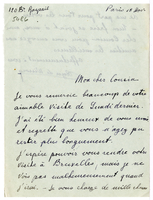 120 Bd Raspail
Paris 18 Nov
Mon cher Cousin
Je vous remercie beaucoup de votre
aimable visite de Lundi dernier.
J'ai été bien heureux de vous voir
et regrette que vous n'ayez pu
rester plus longuement.
J'espère pouvoir vous rendre votre
visite à Bruxelles, mais je ne
sais pas malheureusement quand
j'irai. Je vous charge de mille choses